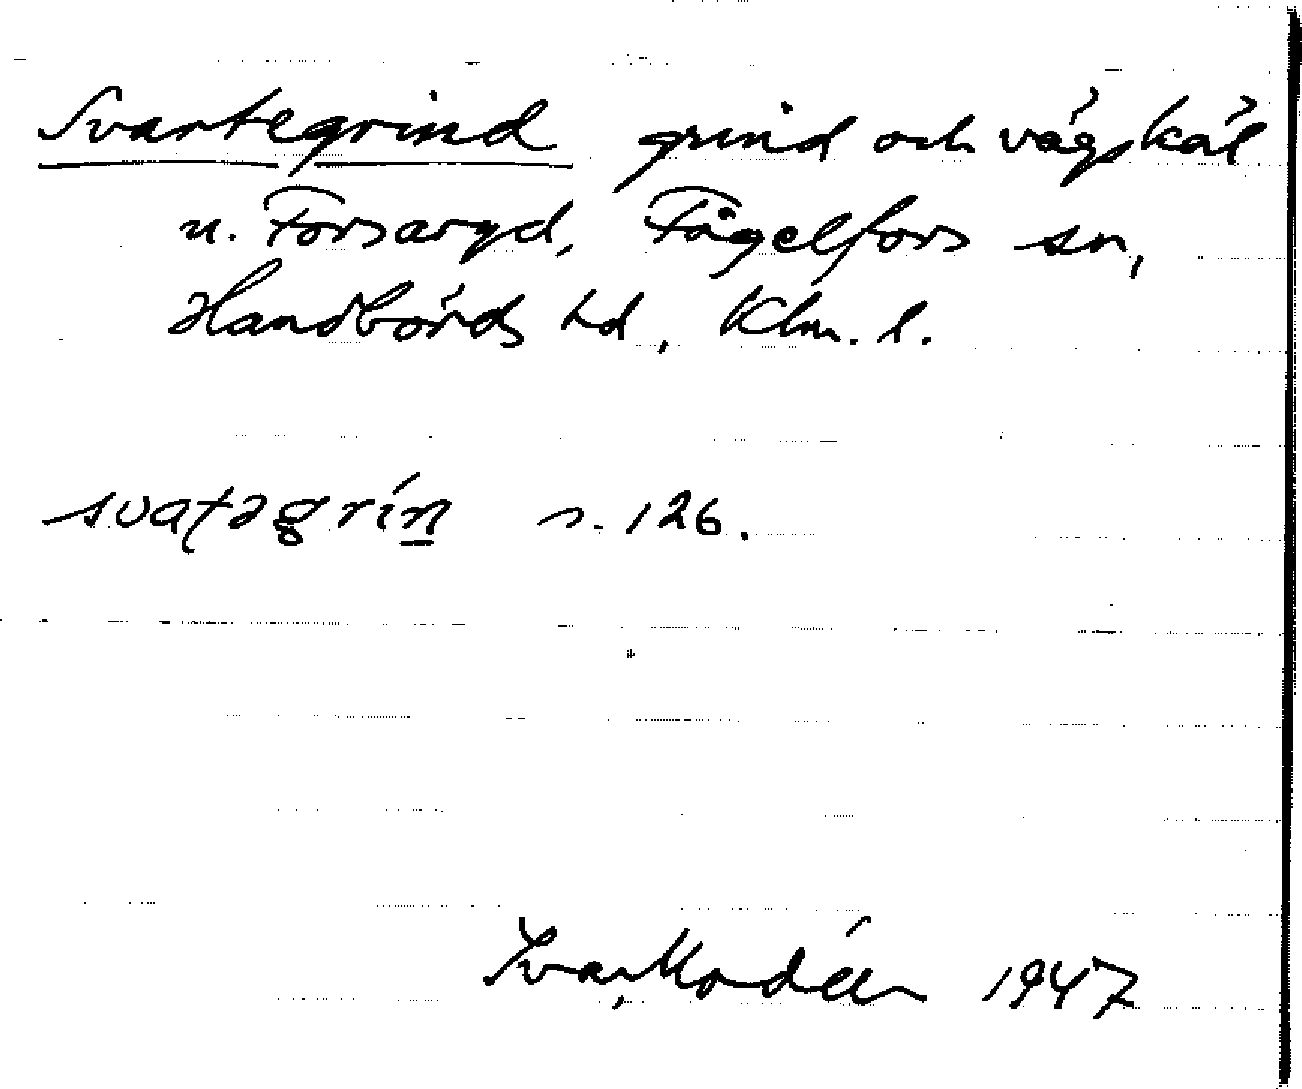 Svartegrind grind och vägskäl
u. Forsaryd, Fågelfors sn,
Handbörds hd, Klm. l.
svatəgrín s. 126.
Ivar Modéer 1947